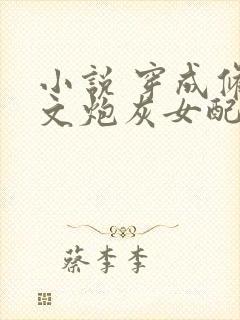 小说 穿成修
文炮灰女配
蔡李李